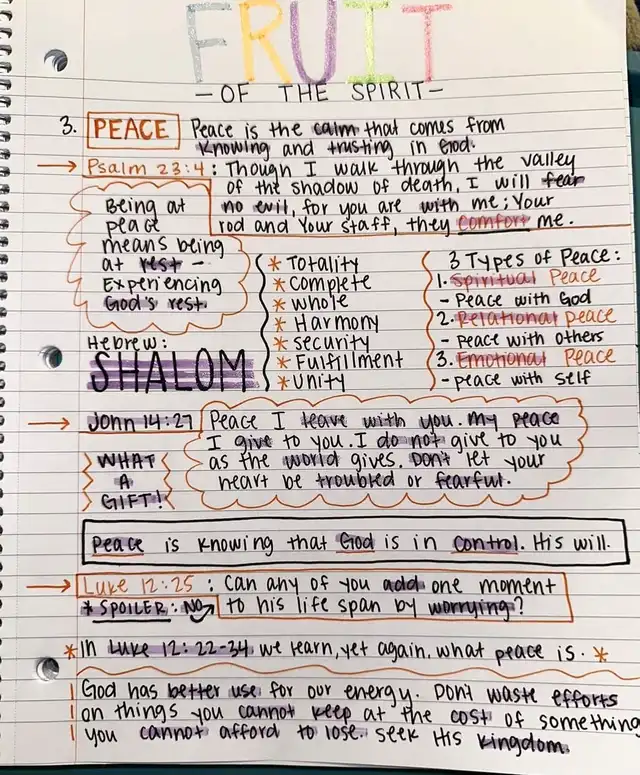 FRUIT
- OF THE SPIRIT -
3. PEACE Peace is the calm that comes from
knowing and trusting in God.
→ Psalm 23:4: Though I walk through the valley
of the shadow of death, I will fear
no evil, for you are with me; Your
rod and Your staff, they comfort me.
Being at
peace
means being
at rest -
Experiencing
God's rest
Hebrew:
SHALOM
* Totality
* complete
* whole
* Harmony
* security
* Fulfillment
* Unity
3 Types of Peace:
1. Spiritual Peace
- Peace with God
2. Relational peace
- peace with others
3. Emotional Peace
- peace with self
→ John 14:27
Peace I leave with you. My peace
I give to you. I do not give to you
as the world gives. Don't let your
heart be troubled or fearful.
WHAT
A
GIFT!
Peace is knowing that God is in control. His will.
→ Luke 12:25 : Can any of you add one moment
to his life span by worrying?
* SPOILER: NO
* In Luke 12:22-34 we learn, yet again, what peace is. *
God has better use for our energy. Don't waste efforts
on things you cannot keep at the cost of something
you cannot afford to lose. Seek His kingdom.